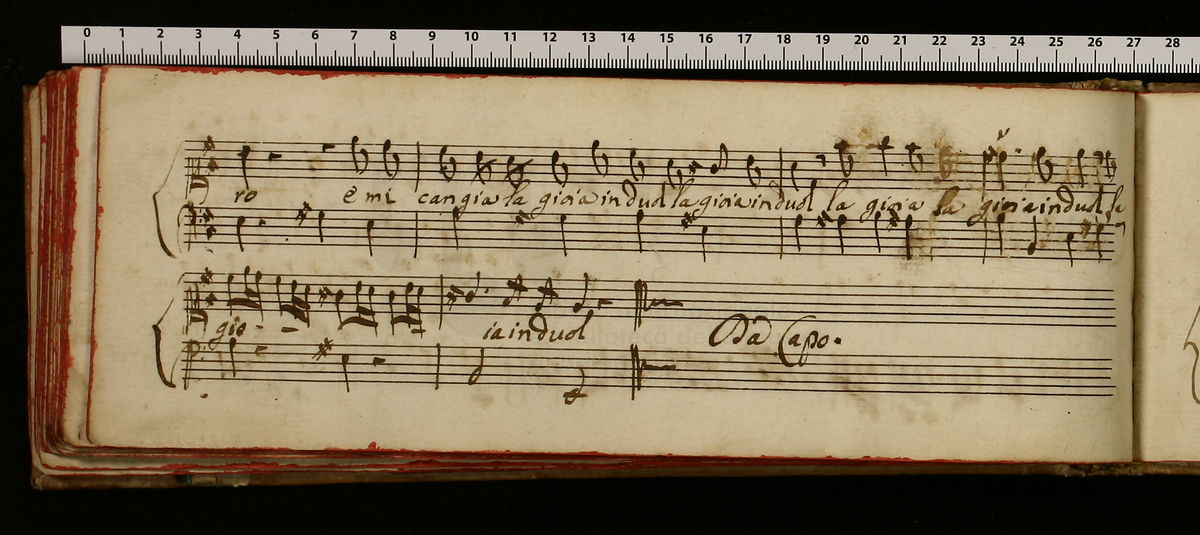 0 1 2 3 4 5 6 7 8 9 10 11 12 13 14 15 16 17 18 19 20 21 22 23 24 25 26 27 28
ro e mi cangia la gioia in duol la gioia in duol la gioia la gioia in duol la
gio - - ia in duol Da Capo.